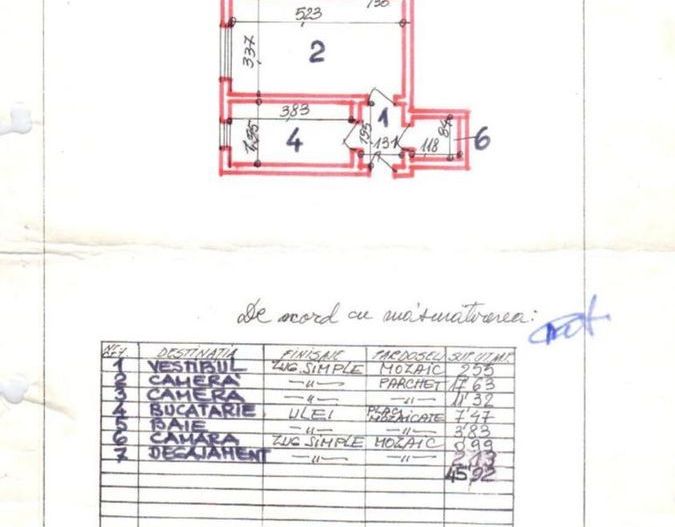 523
337
2
383
1
4
195
195
131
118
84
6
De acord cu măsurătoarea:
NR. CRT. DESTINATIA FINISAJE PARDOSELI SUP. UTILA
1 VESTIBUL ZUG. SIMPLE MOZAIC 2'55
2 CAMERA —"— PARCHET 17'63
3 CAMERA —"— —"— 11'32
4 BUCATARIE ULEI PLACI MOZAICATE 7'47
5 BAIE —"— —"— 3'83
6 CAMARA ZUG. SIMPLE MOZAIC 0'99
7 DEGAJAMENT —"— —"— 2'13
45'92